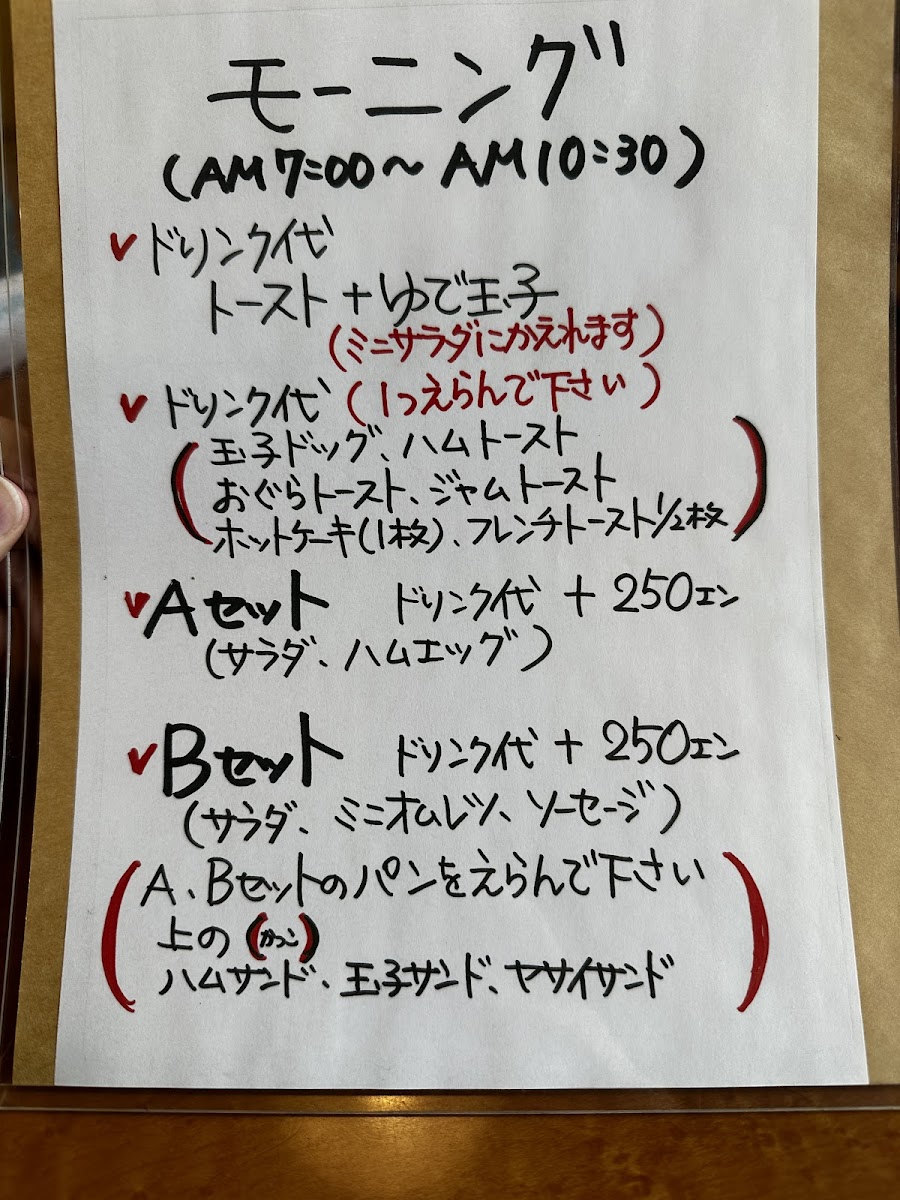 モーニング
(AM7:00〜AM10:30)
✓ドリンク代
トースト+ゆで玉子
(ミニサラダにかえれます)
✓ドリンク代(1つえらんで下さい)
(玉子ドッグ、ハムトースト
おぐらトースト、ジャムトースト
ホットケーキ(1枚)、フレンチトースト1/2枚)
✓Aセット ドリンク代+250エン
(サラダ、ハムエッグ)
✓Bセット ドリンク代+250エン
(サラダ、ミニオムレツ、ソーセージ)
(A、Bセットのパンをえらんで下さい
上の(かっこ)
ハムサンド、玉子サンド、ヤサイサンド)